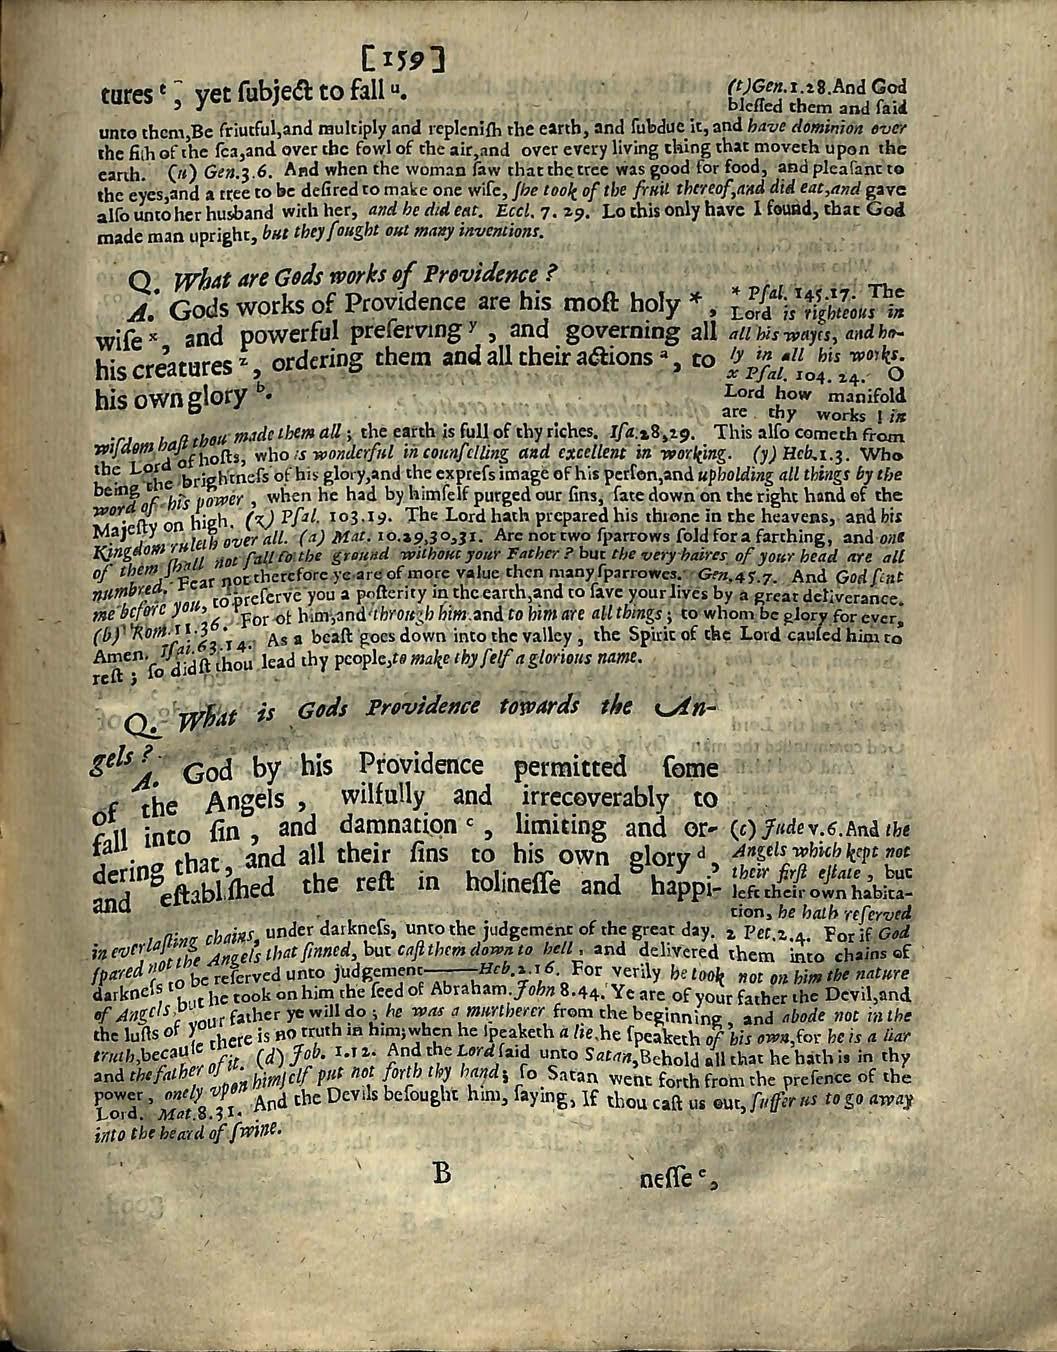 [159]
tures ᵗ, yet ſubject to fall ᵘ.
(t) Gen. 1.28. And God
bleſſed them and ſaid
unto them, Be friutful, and multiply and repleniſh the earth, and ſubdue it, and have dominion over
the fiſh of the ſea, and over the fowl of the air, and over every living thing that moveth upon the
earth. (u) Gen. 3.6. And when the woman ſaw that the tree was good for food, and pleaſant to
the eyes, and a tree to be deſired to make one wiſe, ſhe took of the fruit thereof, and did eat, and gave
alſo unto her husband with her, and he did eat. Eccl. 7. 29. Lo this only have I found, that God
made man upright, but they ſought out many inventions.
Q. What are Gods works of Providence ?
A. Gods works of Providence are his moſt holy *,
wiſe ˣ, and powerful preſerving ʸ, and governing all
his creatures ᶻ, ordering them and all their actions ᵃ, to
his own glory ᵇ.
* Pſal. 145.17. The
Lord is righteous in
all his wayes, and ho-
ly in all his works.
x Pſal. 104. 24. O
Lord how manifold
are thy works ! in
wiſdom haſt thou made them all ; the earth is full of thy riches. Iſa. 28,29. This alſo cometh from
the Lord of hoſts, who is wonderful in counſelling and excellent in working. (y) Heb. 1.3. Who
being the brightneſs of his glory, and the expreſs image of his perſon, and upholding all things by the
word of his power, when he had by himſelf purged our ſins, ſate down on the right hand of the
Majeſty on high. (z) Pſal. 103.19. The Lord hath prepared his throne in the heavens, and his
Kingdom ruleth over all. (a) Mat. 10.29,30,31. Are not two ſparrows ſold for a farthing, and one
of them ſhall not fall to the ground without your Father ? but the very haires of your head are all
numbred. Fear not therefore ye are of more value then many ſparrowes. Gen. 45.7. And God ſent
me before you, to preſerve you a poſterity in the earth, and to ſave your lives by a great deliverance.
(b) Rom. 11.36. For of him, and through him and to him are all things ; to whom be glory for ever,
Amen. Iſai. 63.14. As a beaſt goes down into the valley, the Spirit of the Lord cauſed him to
reſt ; ſo didſt thou lead thy people, to make thy ſelf a glorious name.
Q. What is Gods Providence towards the An-
gels ?
A. God by his Providence permitted ſome
of the Angels, wilfully and irrecoverably to
fall into ſin, and damnation ᶜ, limiting and or-
dering that, and all their ſins to his own glory ᵈ,
and eſtabliſhed the reſt in holineſſe and happi-
(c) Jude v. 6. And the
Angels which kept not
their firſt eſtate, but
left their own habita-
tion, he hath reſerved
in everlaſting chains, under darkneſs, unto the judgement of the great day. 2 Pet. 2.4. For if God
ſpared not the Angels that ſinned, but caſt them down to hell, and delivered them into chains of
darkneſs to be reſerved unto judgement—— Heb. 2.16. For verily he took not on him the nature
of Angels, but he took on him the ſeed of Abraham. John 8.44. Ye are of your father the Devil, and
the luſts of your father ye will do ; he was a murtherer from the beginning, and abode not in the
truth, becauſe there is no truth in him; when he ſpeaketh a lie, he ſpeaketh of his own, for he is a liar
and the father of it. (d) Job. 1.12. And the Lord ſaid unto Satan, Behold all that he hath is in thy
power, onely upon himſelf put not forth thy hand; ſo Satan went forth from the preſence of the
Lord. Mat. 8.31. And the Devils beſought him, ſaying, If thou caſt us out, ſuffer us to go away
into the heard of ſwine.
B
neſſe ᵉ,